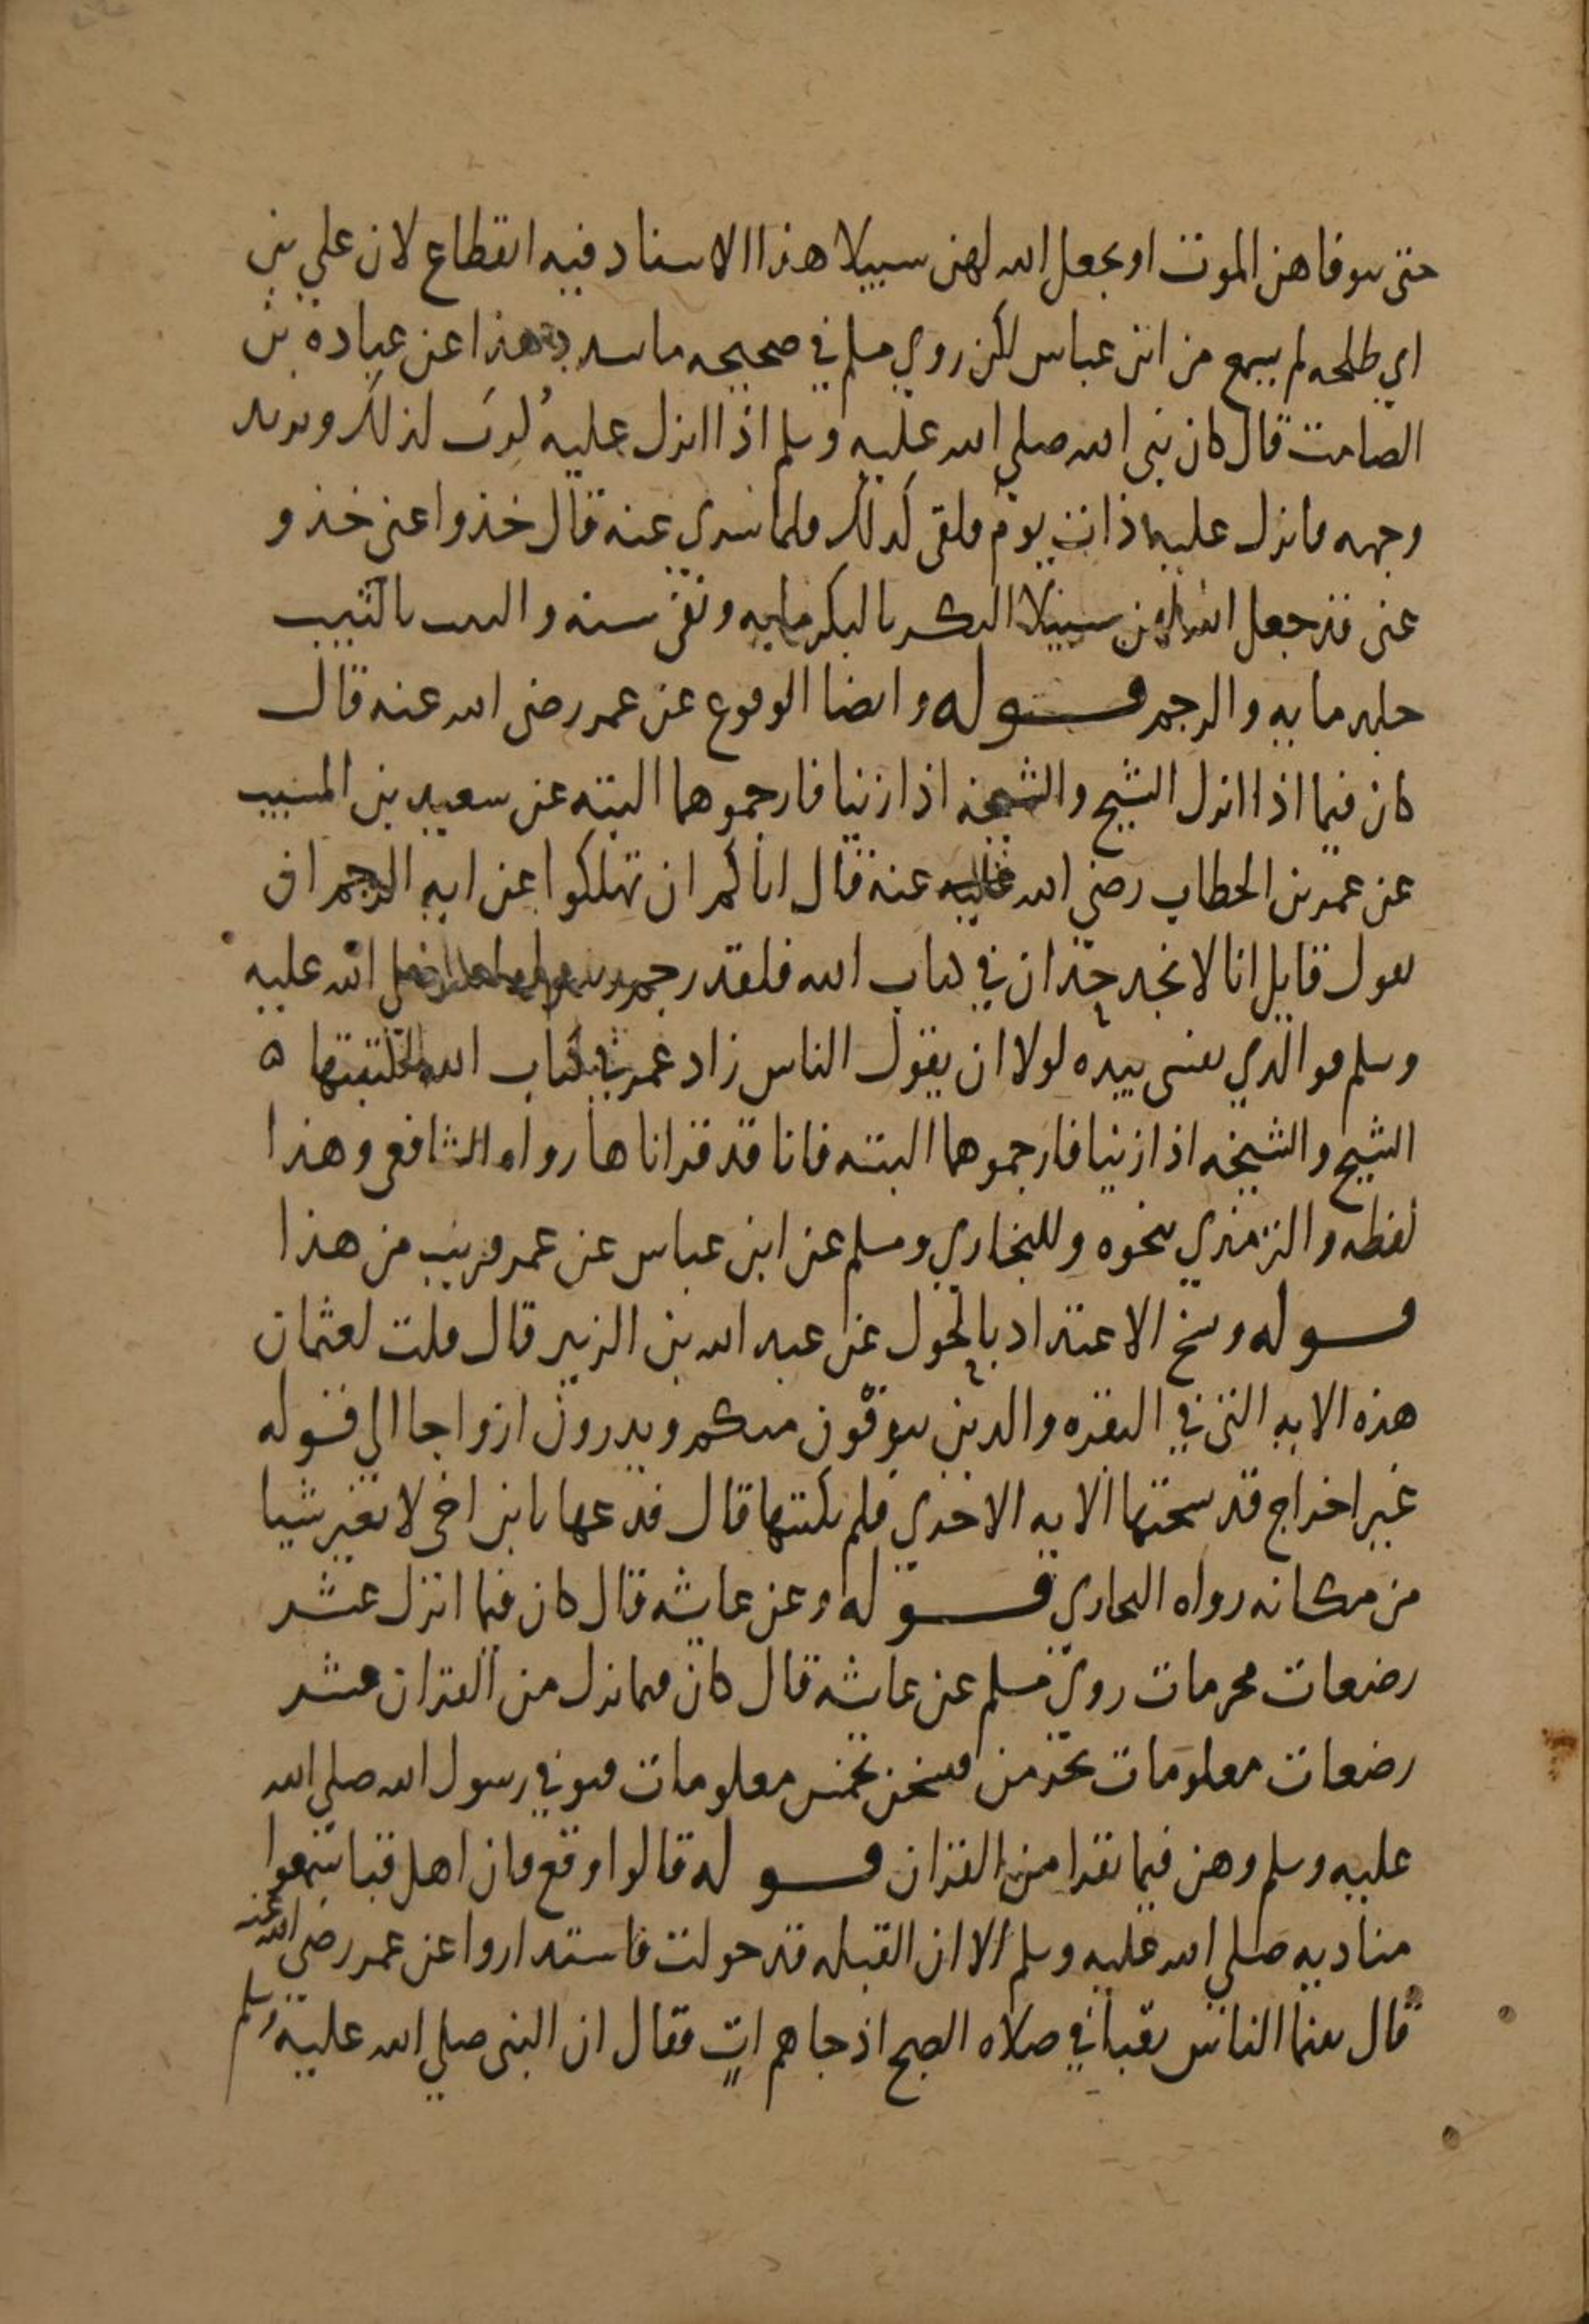 حتى يتوفاهن الموت او يجعل الله لهن سبيلا هذا الاسناد فيه انقطاع لان علي بن
ابي طلحه لم يسمع من ابن عباس لكن روي مسلم في صحيحه ما يسدد هذا عن عبادة بن
الصامت قال كان نبي الله صلي الله عليه وسلم اذا انزل عليه كُرِبَ لذلك وتربد
وجهه فانزل عليه ذات يوم فلقى كذلك فلما سري عنه قال خذوا عنى خذو
عنى قد جعل الله لهن سبيلا البكر بالبكر مايه ونفي سنه والثيب بالثيب
جلد مايه والرجم قوله وايضا الوقوع عن عمر رضي الله عنه قال
كان فيما اذا انزل الشيخ والشيخه اذا زنيا فارجموهما البته عن سعيد بن المسيب
عن عمر بن الخطاب رضي الله عنه قال اياكم ان تهلكوا عن ايه الرجم ان
يقول قايل انا لا نجد حدان في كتاب الله فلقد رجم الله عليه
وسلم فوالذي نفسي بيده لولا ان يقول الناس زاد عمر في كتاب الله لكتبتها ه
الشيخ والشيخه اذا زنيا فارجموهما البته فانا قد قراناها رواه الشافعي وهذا
لفظه والترمذي نحوه وللبخاري ومسلم عن ابن عباس عن عمر قريب من هذا
قوله ونسخ الاعتداد بالحول عن عبد الله بن الزبير قال قلت لعثمان
هذه الايه التي في البقره والذين يتوفون منكم ويذرون ازواجا الي قوله
غير اخراج قد نسختها الايه الاخري فلم تكتبها قال فدعها يابن اخي لا نغير شيا
من مكانه رواه البخاري قوله وعن عايشه قال كان فيما انزل عشر
رضعات محرمات روي مسلم عن عايشه قال كان فيما نزل من القران عشر
رضعات معلومات يحرمن فنسخن بخمس معلومات فتوفي رسول الله صلي الله
عليه وسلم وهن فيما نقرا من القران قوله قالوا وقع فان اهل قبا سمعوا
مناديه صلي الله عليه وسلم الا ان القبله قد حولت فاستداروا عن عمر رضي الله عنه
قال بينما الناس بقبا في صلاه الصبح اذ جاهم اتٍ فقال ان النبي صلي الله عليه وسلم